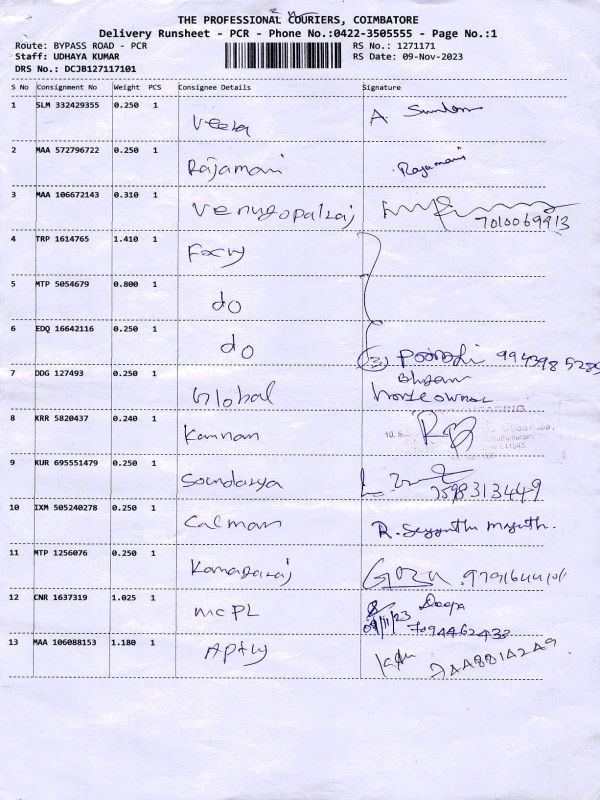 THE PROFESSIONAL COURIERS, COIMBATORE
Delivery Runsheet - PCR - Phone No.:0422-3505555 - Page No.:1
Route: BYPASS ROAD - PCR RS No.: 1271171
Staff: UDHAYA KUMAR RS Date: 09-Nov-2023
DRS No.: DCJB127117101
S No Consignment No Weight PCS Consignee Details Signature
1 SLM 332429355 0.250 1 Veera A
2 MAA 572796722 0.250 1 Rajamani Rajamani
3 MAA 106672143 0.310 1 Venugopalraj
7010069913
4 TRP 1614765 1.410 1
5 MTP 5054679 0.800 1 do
6 EDQ 16642116 0.250 1 do (3)
7 DDG 127493 0.250 1 Global house owner
8 KRR 5820437 0.240 1 Kannan
9 KUR 695551479 0.250 1 Soundarya 7598313449
10 IXM 505240278 0.250 1 Calman R.
11 MTP 1256076 0.250 1 Kamaraj
12 CNR 1637319 1.025 1 MCPL Deepa
09/11/23 7094462433
13 MAA 106088153 1.180 1